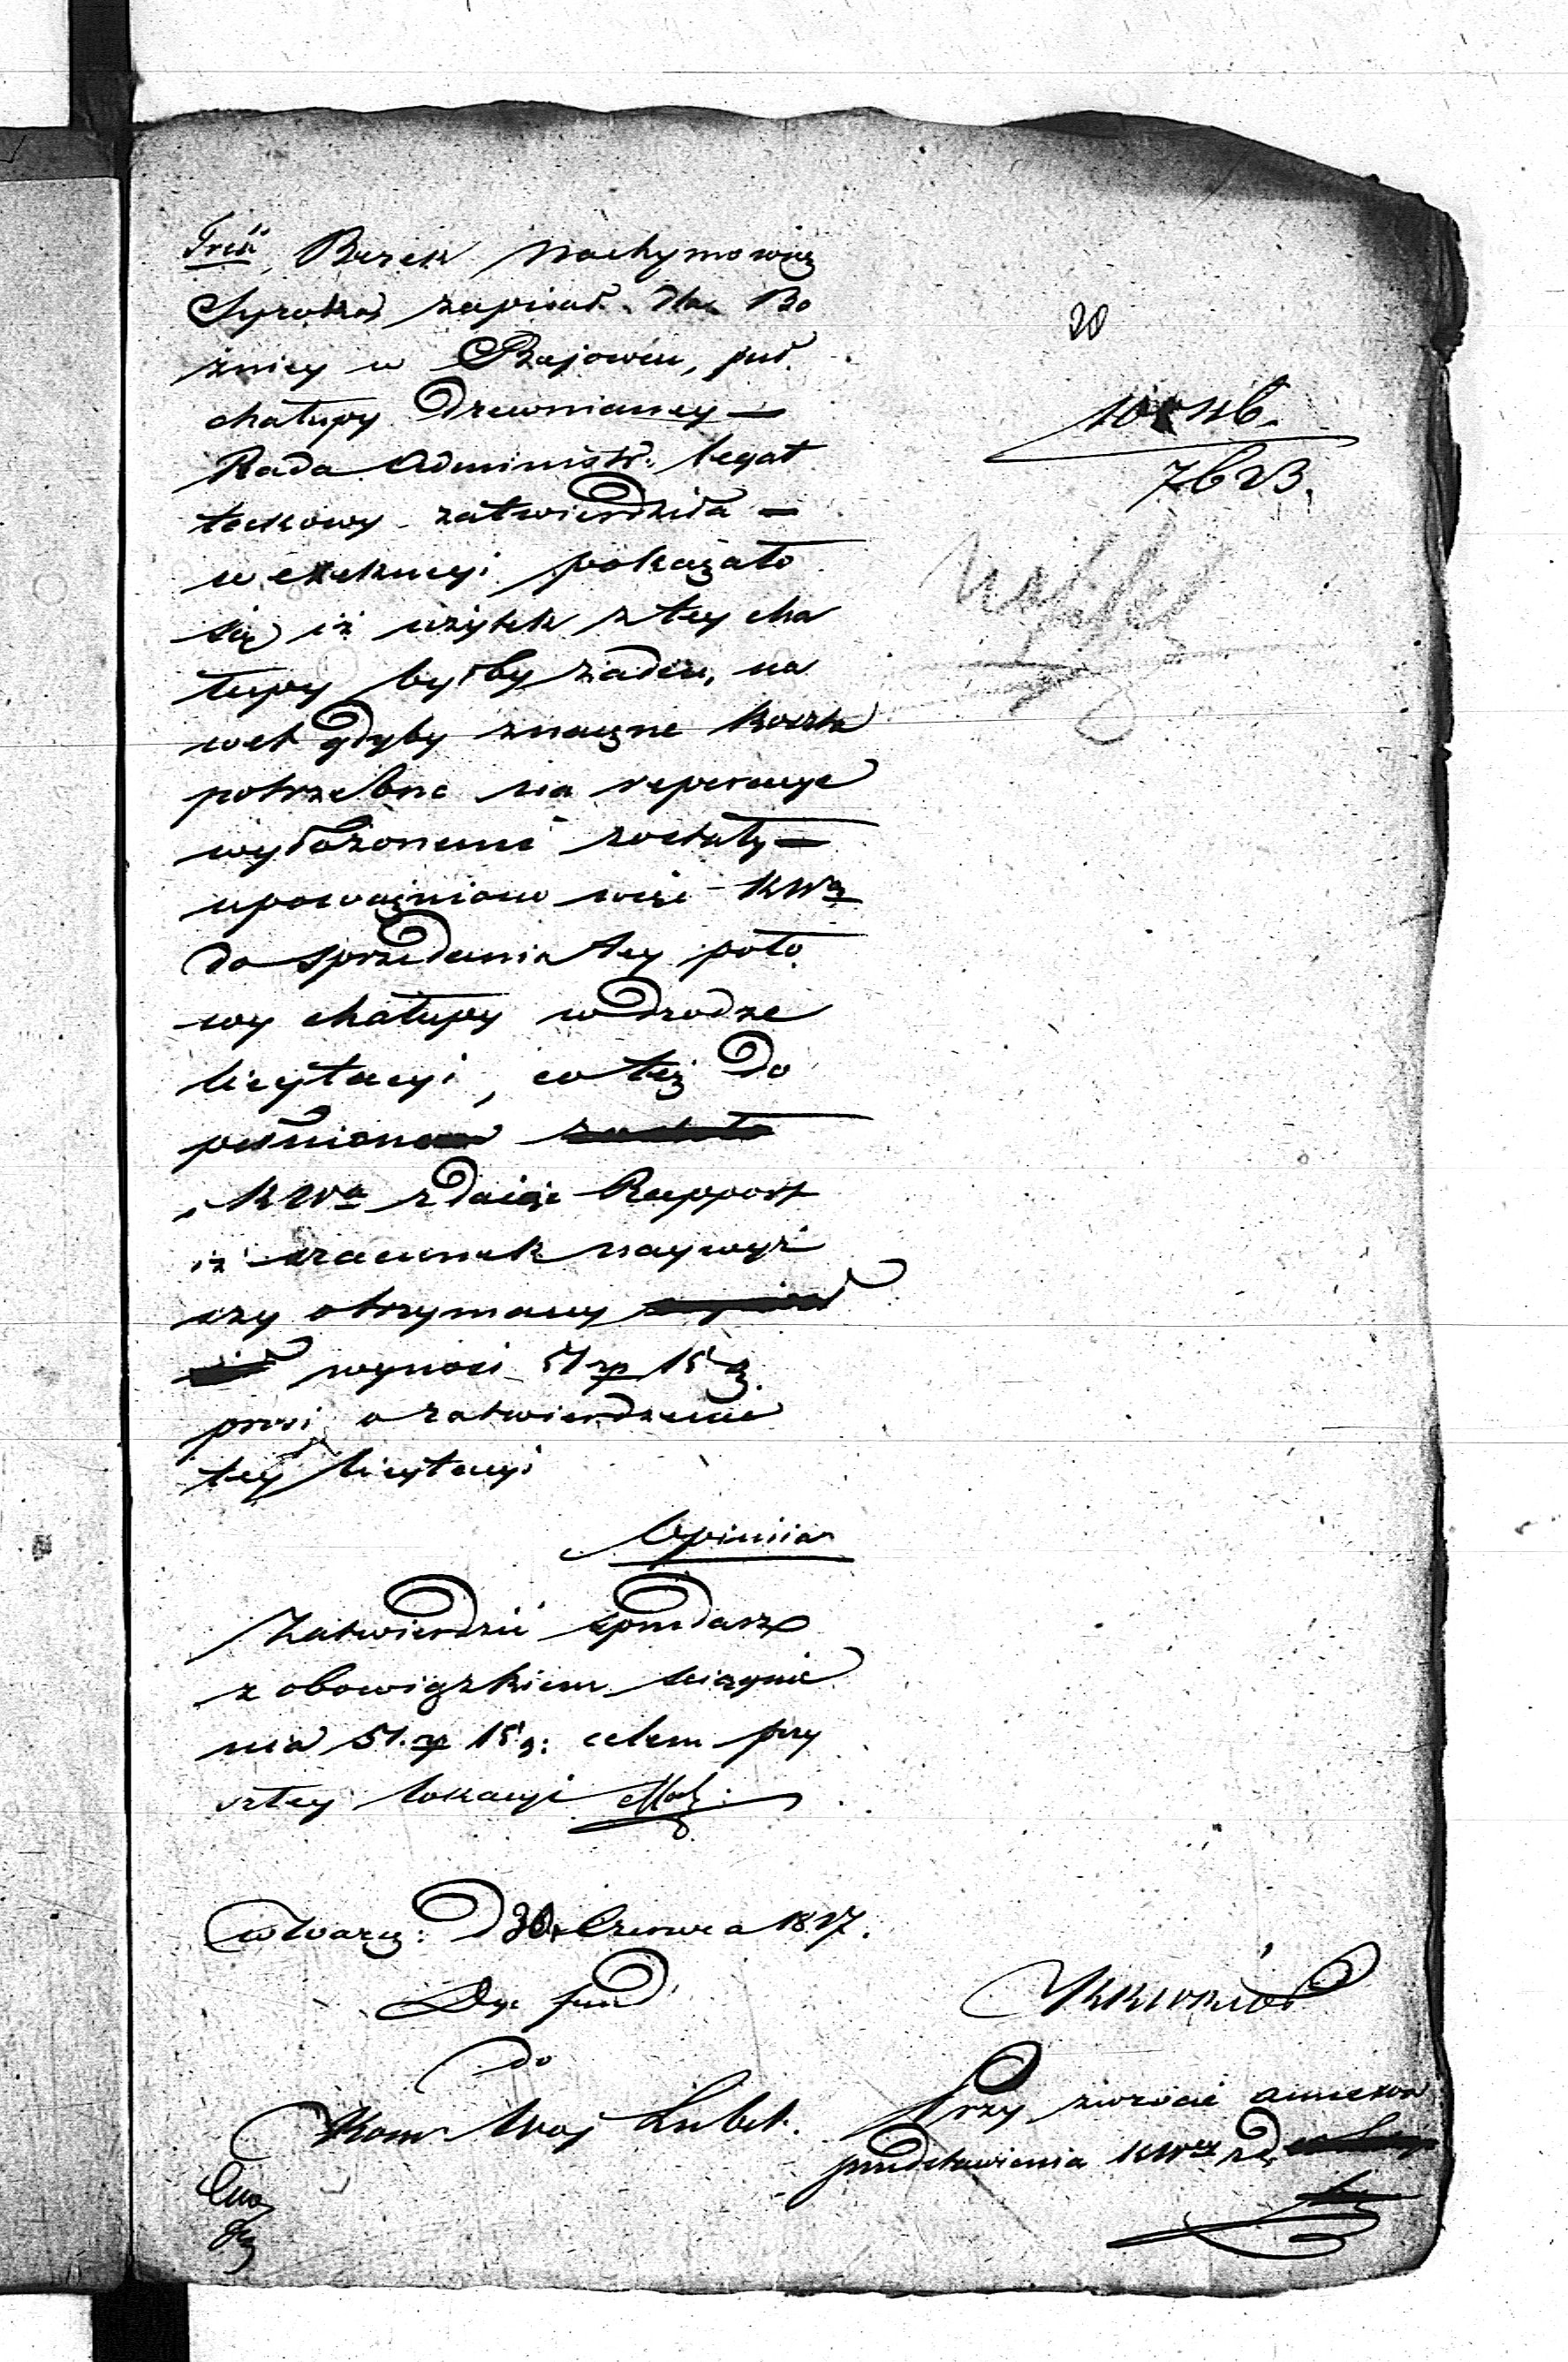 Treść, Berek Nachymowicz
zapisał dla Bo
żnicy w Rejowcu, puł
chałupy drewnianey —
Rada Administr: legat
takowy zatwierdziła —
w exekucyi pokazało
się iż użytek z tey cha
łupy byłby żaden, na
wet gdyby znaczne koszta
potrzebne na reperacye
wyłożonemi zostały —
upoważniono więc KWą
do sprzedania tey poło
wy chałupy w drodze
licytacyi, co też do
pełniono
KWa zdaiąc Rapport
iż szacunek naywyż
szy otrzymany
wynosi 51 zp 15 g
prosi o zatwierdzenie
tey licytacyi
Opinia
Zatwierdzić sprzedarz
z obowiązkiem ściągnie
nia 51. zp 15 g: celem
lokacyi
w Warsz: d 30 Czerwca 1817.
Dyr fund
do
Kom Woj Lubel.
20
Przy zwrocie annexów
przedstawienia KWey